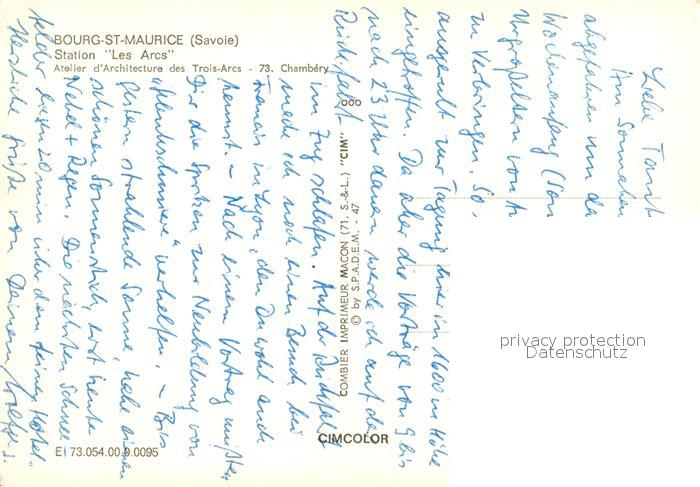 BOURG-ST-MAURICE (Savoie)
Station "Les Arcs"
Atelier d'Architecture des Trois-Arcs - 73. Chambéry
ooo
COMBIER IMPRIMEUR MACON (71. S.-&-L.) "CIM"
© by S.P.A.D.E.M. - 47
CIMCOLOR
E 73.054.00.0.0095
privacy protection
Datenschutz
Liebe Tant
Am Sonne
abgefahren um da
Wochenanfang (Son
Urgroßeltern von
zu verbringen. So
ausgeruht zur Tagung hier in 1600 m Höhe
eingetroffen. Da aber die Vorträge von 9 bis
nach 23 Uhr dauern werde ich auf der
Rückfahrt
im Zug schlafen. Auf der Rückfahrt
mache ich noch einen Besuch bei
in Lyon, den Du wohl auch
kennst. – Nach einem Vortrag müßten
Dir die Spritzen zur Neubildung von
verhelfen. – Bis
gestern strahlende Sonne, habe einen
schönen Sonnenstich, erst heute
Nebel + Regen. Die nächsten Schnee
felder liegen 20 min über dem Hotel.
Herzliche Grüße von Deinem